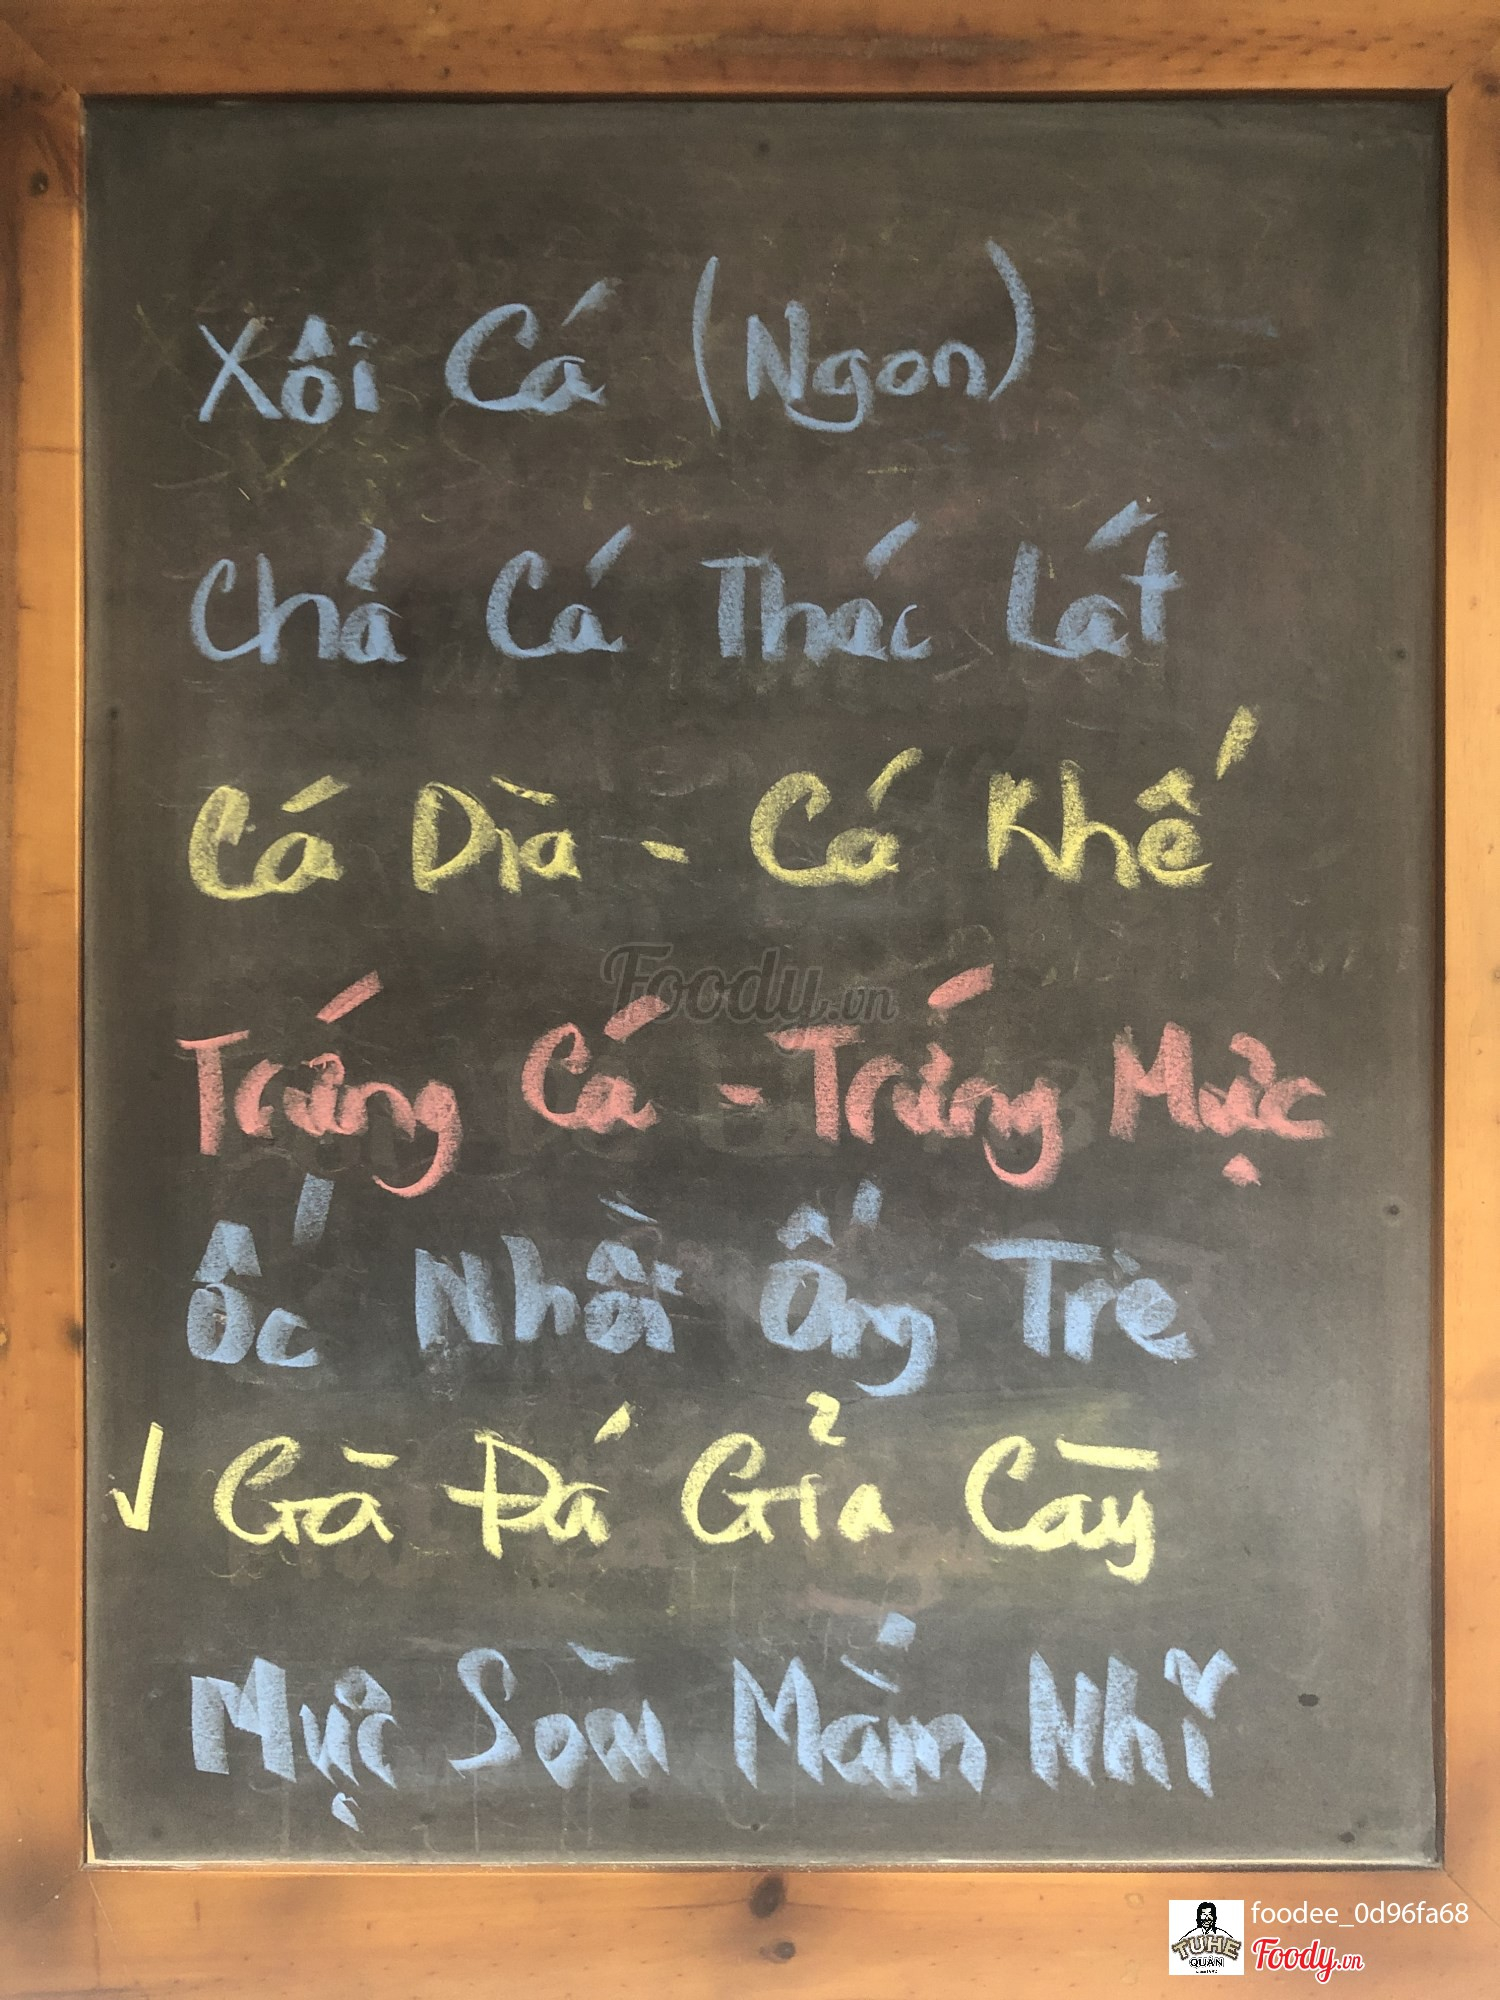 Xôi Cá (Ngon)
Chả Cá Thác Lát
Cá Dìa - Cá Khế
Foody.vn
Trứng Cá - Trứng Mực
Ốc Nhồi Ống Tre
√ Gà Đá Giả Cầy
Mực Sòài Mắm Nhĩ
foodee_0d96fa68
TUHE
QUÁN
Foody.vn